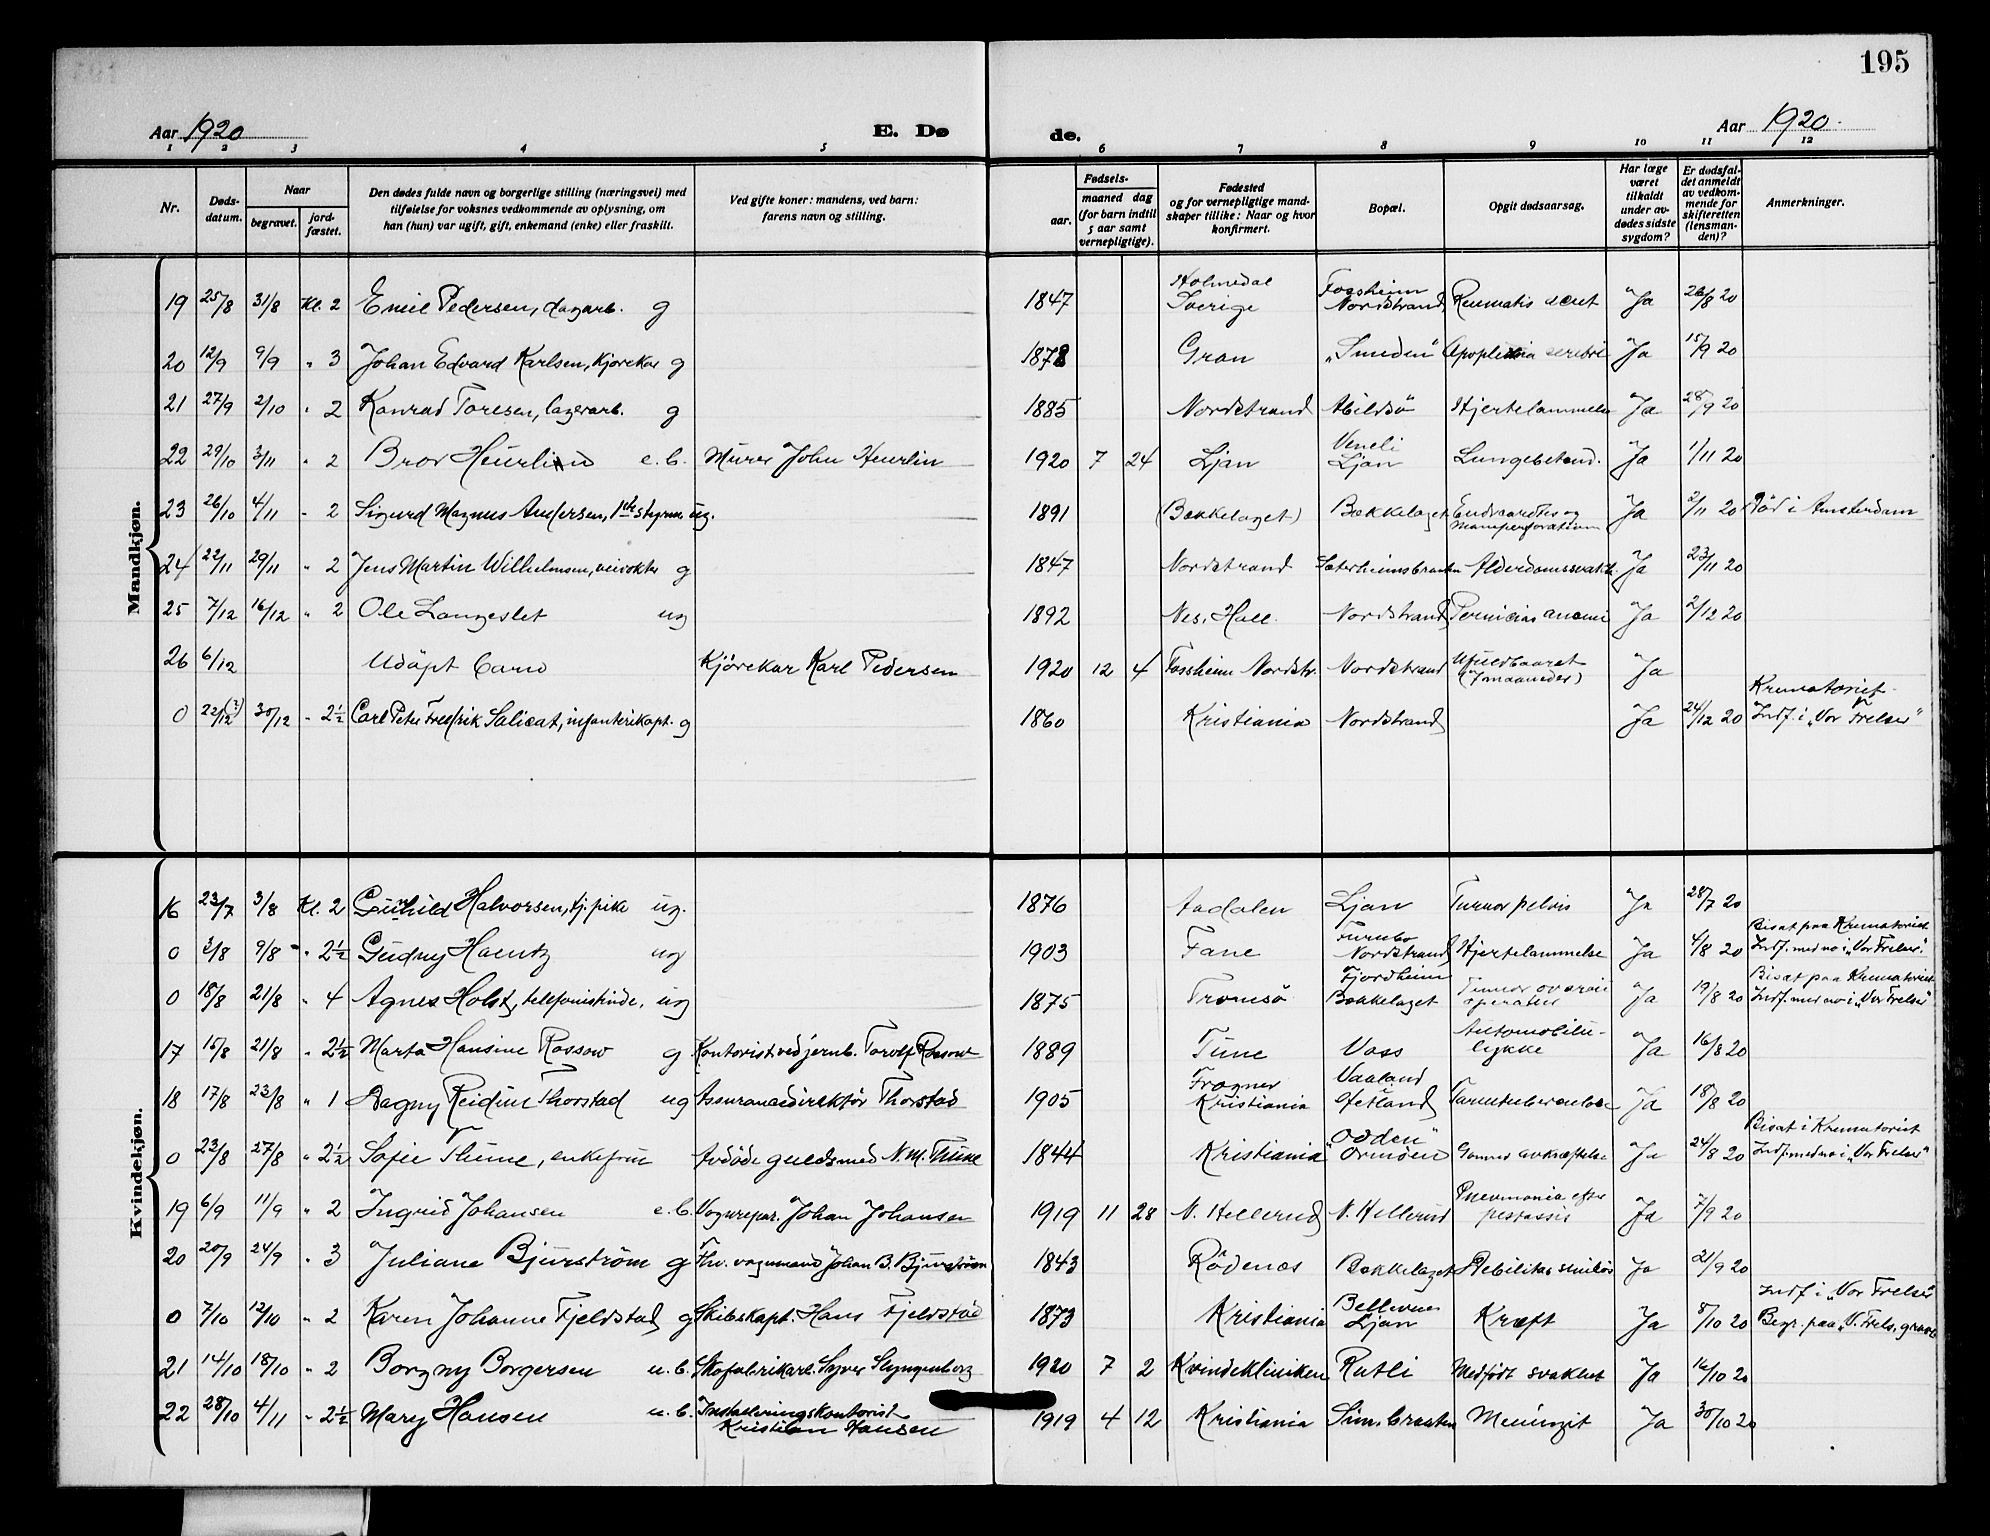 195
Aar 1920
E. Dø
de.
Aar 1920.
1 2 3 4 5 6 7 8 9 10 11 12
Nr.
Døds-
datum.
Naar
begravet.
jord-
fæstet.
Den dødes fulde navn og borgerlige stilling (næringsvei) med
tilføielse for voksnes vedkommende av oplysning, om
han (hun) var ugift, gift, enkemand (enke) eller fraskilt.
Ved gifte koner: mandens, ved barn:
farens navn og stilling.
Fødsels-
aar.
maaned dag
(for barn indtil
5 aar samt
vernepligtige).
Fødested
og for vernepligtige mand-
skaper tillike: Naar og hvor
konfirmert.
Bopæl.
Opgit dødsaarsag.
Har læge
været
tilkaldt
under av-
dødes sidste
sygdom?
Er dødsfal-
det anmeldt
av vedkom-
mende for
skifteretten
(lensman-
den)?
Anmerkninger.
Mandkjøn.
19 25/8 31/8 Kl. 2 Emil Pedersen, dagarb. g 1847 Holmedal Sverige Fossheim Nordstrand Ja 26/8 20
20 12/9 9/9 " 3 Johan Edvard Karlsen, kjørekar g 1878 Gran Apoplexia cerebri Ja 15/9 20
21 27/9 2/10 " 2 Konrad Toresen, lagerarb. g 1885 Nordstrand Abildsø Hjertelammelse Ja 28/9 20
22 29/10 3/11 " 2 Bror Heurlin e.b. Murer John Heurlin 1920 7 24 Ljan Ljan Lungebetænd. Ja 1/11 20
23 26/10 4/11 " 2 Sigurd Magnus Andersen, 1ste styrm. ug. 1891 (Bækkelaget) Bækkelaget Ja 2/11 20 Død i Amsterdam
24 22/11 29/11 " 2 Jens Martin Wilhelmsen, veivokter g 1847 Nordstrand Sæterheimsbraaten Alderdomssvakh. Ja 23/11 20
25 7/12 16/12 " 2 Ole Langeslet ug 1892 Nes, Hall. Nordstrand Perniciøs anæmi Ja 2/12 20
26 6/12 Udøpt barn Kjørekar Karl Pedersen 1920 12 4 Fossheim Nordstr. Nordstrand Ufuldbaaret (7 maaneder) Ja
0 22/12 (?) 30/12 " 2½ Carl Peter Fredrik Salicat, infanterikapt. g 1860 Kristiania Nordstrand Ja 24/12 20 Krematoriet. Indf. i "Vor Frelser"
Kvindekjøn.
16 23/7 3/8 Kl. 2 Gunhild Halvorsen, tj.pike ug. 1876 Aadalen Ljan Tumor pelvis Ja 28/7 20
0 3/8 9/8 " 2½ Gudny Haentz ug 1903 Fane Furubo Nordstrand Hjertelammelse Ja 4/8 20 Bisat paa Krematoriet Indf. med no i "Vor Frelser".
0 18/8 21/8 " 4 Agnes Holst, telefonistinde, ug 1875 Tromsø Fjordheim Bækkelaget Tumor ovarii operatus Ja 19/8 20 Bisat paa Krematoriet Indf. med no i "Vor Frelser"
17 15/8 21/8 " 2½ Marta Hansine Rossow g Kontorist ved jernb. Torolf Rossow 1889 Tune Voss Automobilu- lykke Ja 16/8 20
18 17/8 23/8 " 1 Dagny Reidun Thorstad ug Assurancedirektør Thorstad 1905 Frogner Kristiania Vaaland Østland Tarmtuberculose Ja 18/8 20
0 23/8 27/8 " 2½ Sofie Thune, enkefrue Avdøde guldsmed N.M. Thune 1844 Kristiania "Odden" Ormøen Gammel avkræftelse Ja 24/8 20 Bisat i Krematoriet Indf. med no i "Vor Frelser"
19 6/9 11/9 " 2 Ingrid Johansen e.b. Vognrepar. Johan Johansen 1919 11 28 N. Hellerud N. Hellerud Pneumonia efter Ja 7/9 20
20 20/9 24/9 " 3 Juliane Bjurstrøm g Fhv. vognmand Johan B. Bjurstrøm 1843 Rødenæs Bækkelaget Debilitas senilis Ja 21/9 20
0 7/10 12/10 " 2 Karen Johanne Fjeldstad g Skibskapt. Hans Fjeldstad 1873 Kristiania Bellevue Ljan Kræft Ja 8/10 20 Indf i "Vor Frelser". Begr. paa "V. Frels. gravl.
21 14/10 18/10 " 2 Borgny Borgersen u.b. Skofabrikarb. Syver Slyngenborg 1920 7 2 Kvindekliniken Rutli Medfødt svakhet Ja 16/10 20
22 28/10 4/11 " 2½ Mary Hansen u.b. Installeringskontorist Kristian Hansen 1919 4 12 Kristiania Sim.braaten Meningit Ja 30/10 20